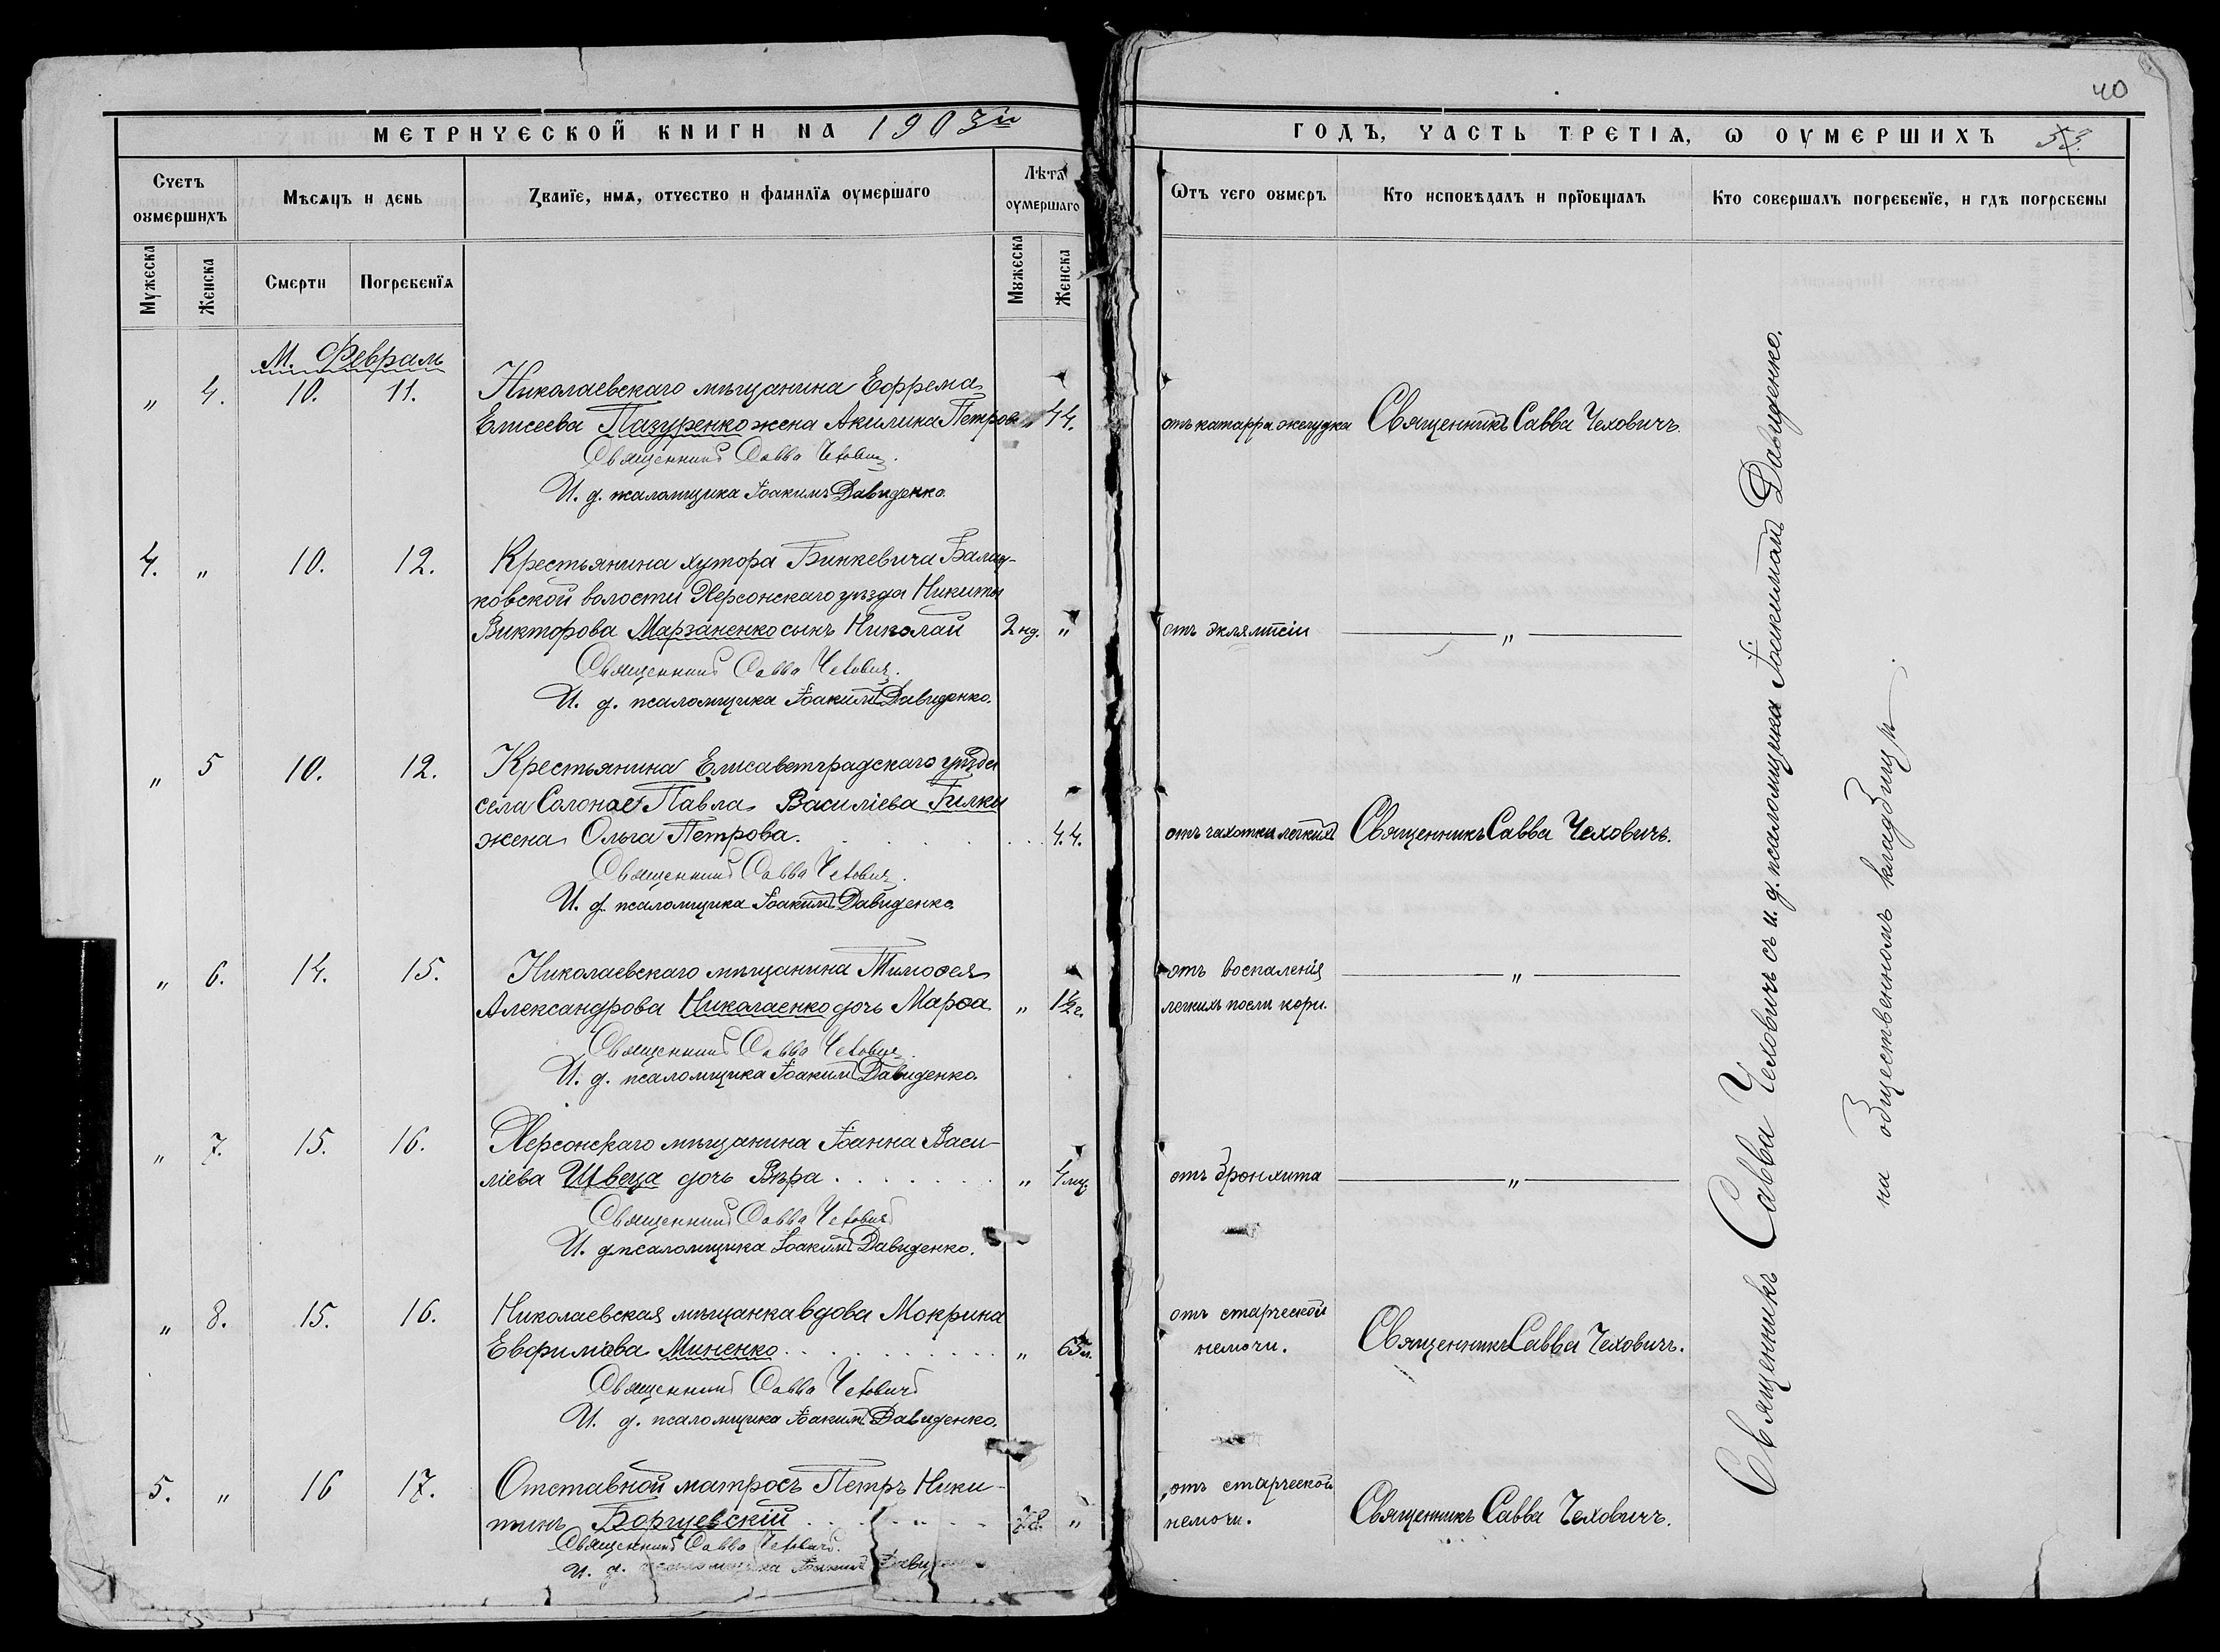 МЕТРИЧЕСКОЙ КНИГИ НА 1903й
Счетъ оумершихъ
Мѣсяцъ и день
Званїе, имя, отчество и фамилїя оумершаго
Лѣта оумершаго
Мужеска
Женска
Смерти
Погребенїя
Мужеска
Женска
М. Февраль
„ 4. 10. 11. Николаевскаго мѣщанина Ефрема
Елисеева Пазуренко жена Акилина Петрова 44.
Священникъ Савва Чеховичъ.
И. д. псаломщика Іоакимъ Давиденко.
4. „ 10. 12. Крестьянина хутора Бинкевича Балац-
ковской волости Херсонскаго уѣзда Никиты
Викторова Марзаненко сынъ Николай 2 нд. „
Священникъ Савва Чеховичъ.
И. д. псаломщика Іоакимъ Давиденко.
„ 5 10. 12. Крестьянина Елисаветградскаго уѣзда
села Солонае Павла Василіева Гилки
жена Ольга Петрова. 44.
Священникъ Савва Чеховичъ.
И. д. псаломщика Іоакимъ Давиденко.
„ 6. 14. 15. Николаевскаго мѣщанина Тимоѳея
Александрова Николаенко дочь Марѳа „ 1½ г.
Священникъ Савва Чеховичъ.
И. д. псаломщика Іоакимъ Давиденко.
„ 7. 15. 16. Херсонскаго мѣщанина Іоанна Васи-
ліева Швеца дочь Вѣра „ 4 мц.
Священникъ Савва Чеховичъ
И. д. псаломщика Іоакимъ Давиденко.
„ 8. 15. 16. Николаевская мѣщанка вдова Мокрина
Евфиміева Миненко „ 65 л.
Священникъ Савва Чеховичъ
И. д. псаломщика Іоакимъ Давиденко.
5. „ 16 17. Отставной матросъ Петръ Ники-
тинъ Борщевскій 78. „
Священникъ Савва Чеховичъ.
И. д. псаломщика Іоакимъ Давиденко
40
ГОДЪ, ЧАСТЬ ТРЕТІЯ, Ѡ ОУМЕРШИХЪ 53.
Ѿтъ чего оумеръ
Кто исповѣдалъ и прїобщалъ
Кто совершалъ погребенїе, и гдѣ погребены
отъ катарра желудка Священникъ Савва Чеховичъ.
отъ эклампсіи „
отъ чахотки легкихъ Священникъ Савва Чеховичъ.
отъ воспаленія „
легкихъ послѣ кори.
отъ бронхита „
отъ старческой
немочи. Священникъ Савва Чеховичъ.
отъ старческой
немочи. Священникъ Савва Чеховичъ.
Священникъ Савва Чеховичъ съ и. д. псаломщика Іоакимомъ Давиденко.
на общественномъ кладбищѣ.